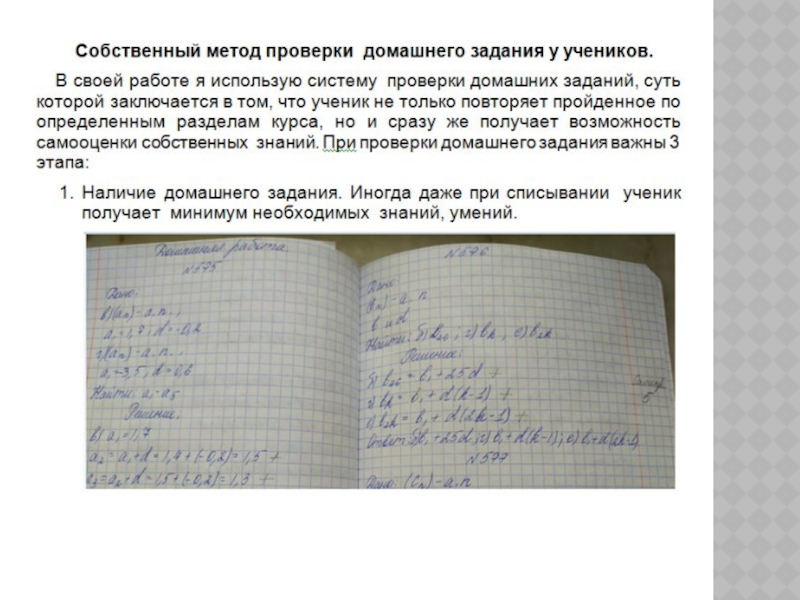 Собственный метод проверки домашнего задания у учеников.
В своей работе я использую систему проверки домашних заданий, суть
которой заключается в том, что ученик не только повторяет пройденное по
определенным разделам курса, но и сразу же получает возможность
самооценки собственных знаний. При проверки домашнего задания важны 3
этапа:
1. Наличие домашнего задания. Иногда даже при списывании ученик
получает минимум необходимых знаний, умений.
Домашняя работа.
№575
Дано:
в)(aₙ) - а.п.,
a₁=1,7; d=-0,2
г)(aₙ) - а.п.,
a₁=-3,5; d=0,6
Найти: a₁-a₅
Решение:
в) a₁=1,7
a₂=a₁+d=1,7+(-0,2)=1,5 +
a₃=a₂+d=1,5+(-0,2)=1,3 +
№576
Дано:
(bₙ) - а.п
b₁ и d
Найти: б) b₂₆; г) bₖ;
Решение:
б) b₂₆ = b₁ + 25d +
г) bₖ = b₁ + d(k-1) +
b₂ₖ = b₁ + d(2k-1) +
Ответ: b₁+25d; г) b₁+d(k-1);
№577
Дано: (cₙ) - а.п
5